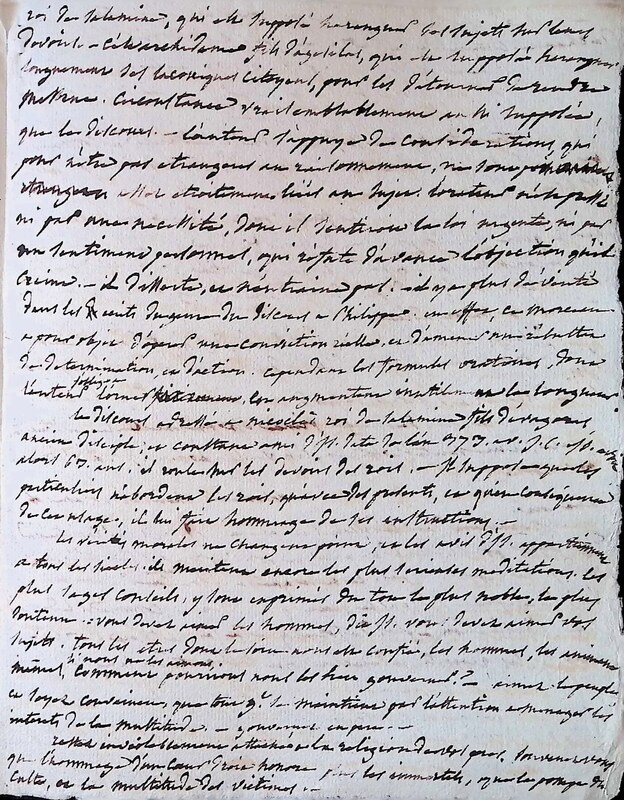 roi de Salamine, qui est supposé haranguer ses sujets sur leurs
devoirs. - C'est archidame fils d'agésilas, qui est supposé haranguer
longuement ses laconiques citoyens, pour les détourner de rendre
Messène. Circonstance vraisemblablement aussi supposée,
que le discours. - L'auteur s'appuye de considérations, qui
pour n'être pas étrangères au raisonnement, ne sont pas
assez étroitement liées au sujet. L'orateur n'est pressé
ni par une nécessité, dont il sentiroit la loi urgente, ni par
un sentiment personnel, qui réfute d'avance l'objection qu'il
craint. - il disserte, et n'entraine pas. - il y a plus de vérité
dans les du discours a Philippe. en effet, ce morceau
a pour objet d'après une conviction réelle, et d'amener un résultat
de détermination, et d'action. cependant les formules oratoires, dont
l'auteur l'orne, en augmentent inutilement la longueur
Le discours adressé a nicoclès roi de Salamine fils d'evagoras
ancien disciple, et constant ami d'Is. date de l'an av. J. C. Is. avoit
alors 63. ans; il roule sur les devoirs des rois. - Is. suppose que les
particuliers n'abordent les rois, qu'avec des présents, et qu'en conséquence
de cet usage, il lui fait hommage de ses instructions. -
Les vérités morales ne changent point, et les avis d'Is. appartiennent
a tous les siècles. ils méritent encore les plus sérieuses méditations. les
plus sages conseils, y sont exprimés du ton le plus noble, le plus
soutenu. vous devez aimer les hommes, dit Is. vous devez aimer vos
sujets. tous les etres dont le soin nous est confié, les hommes, les animaux
si nous ne les aimons,
mêmes, comment pourrions nous les bien gouverner? - aimez le peuple
et soyez convaincu, que tout g.t se maintient par l'attention a ménager les
intérets de la multitude. - gouvernez en père. -
restez inviolablement attaché a la religion de vos pères. souvenez vous
que l'hommage d'un coeur droit honore plus les immortels, que la pompe du
culte, et la multitude des victimes. -